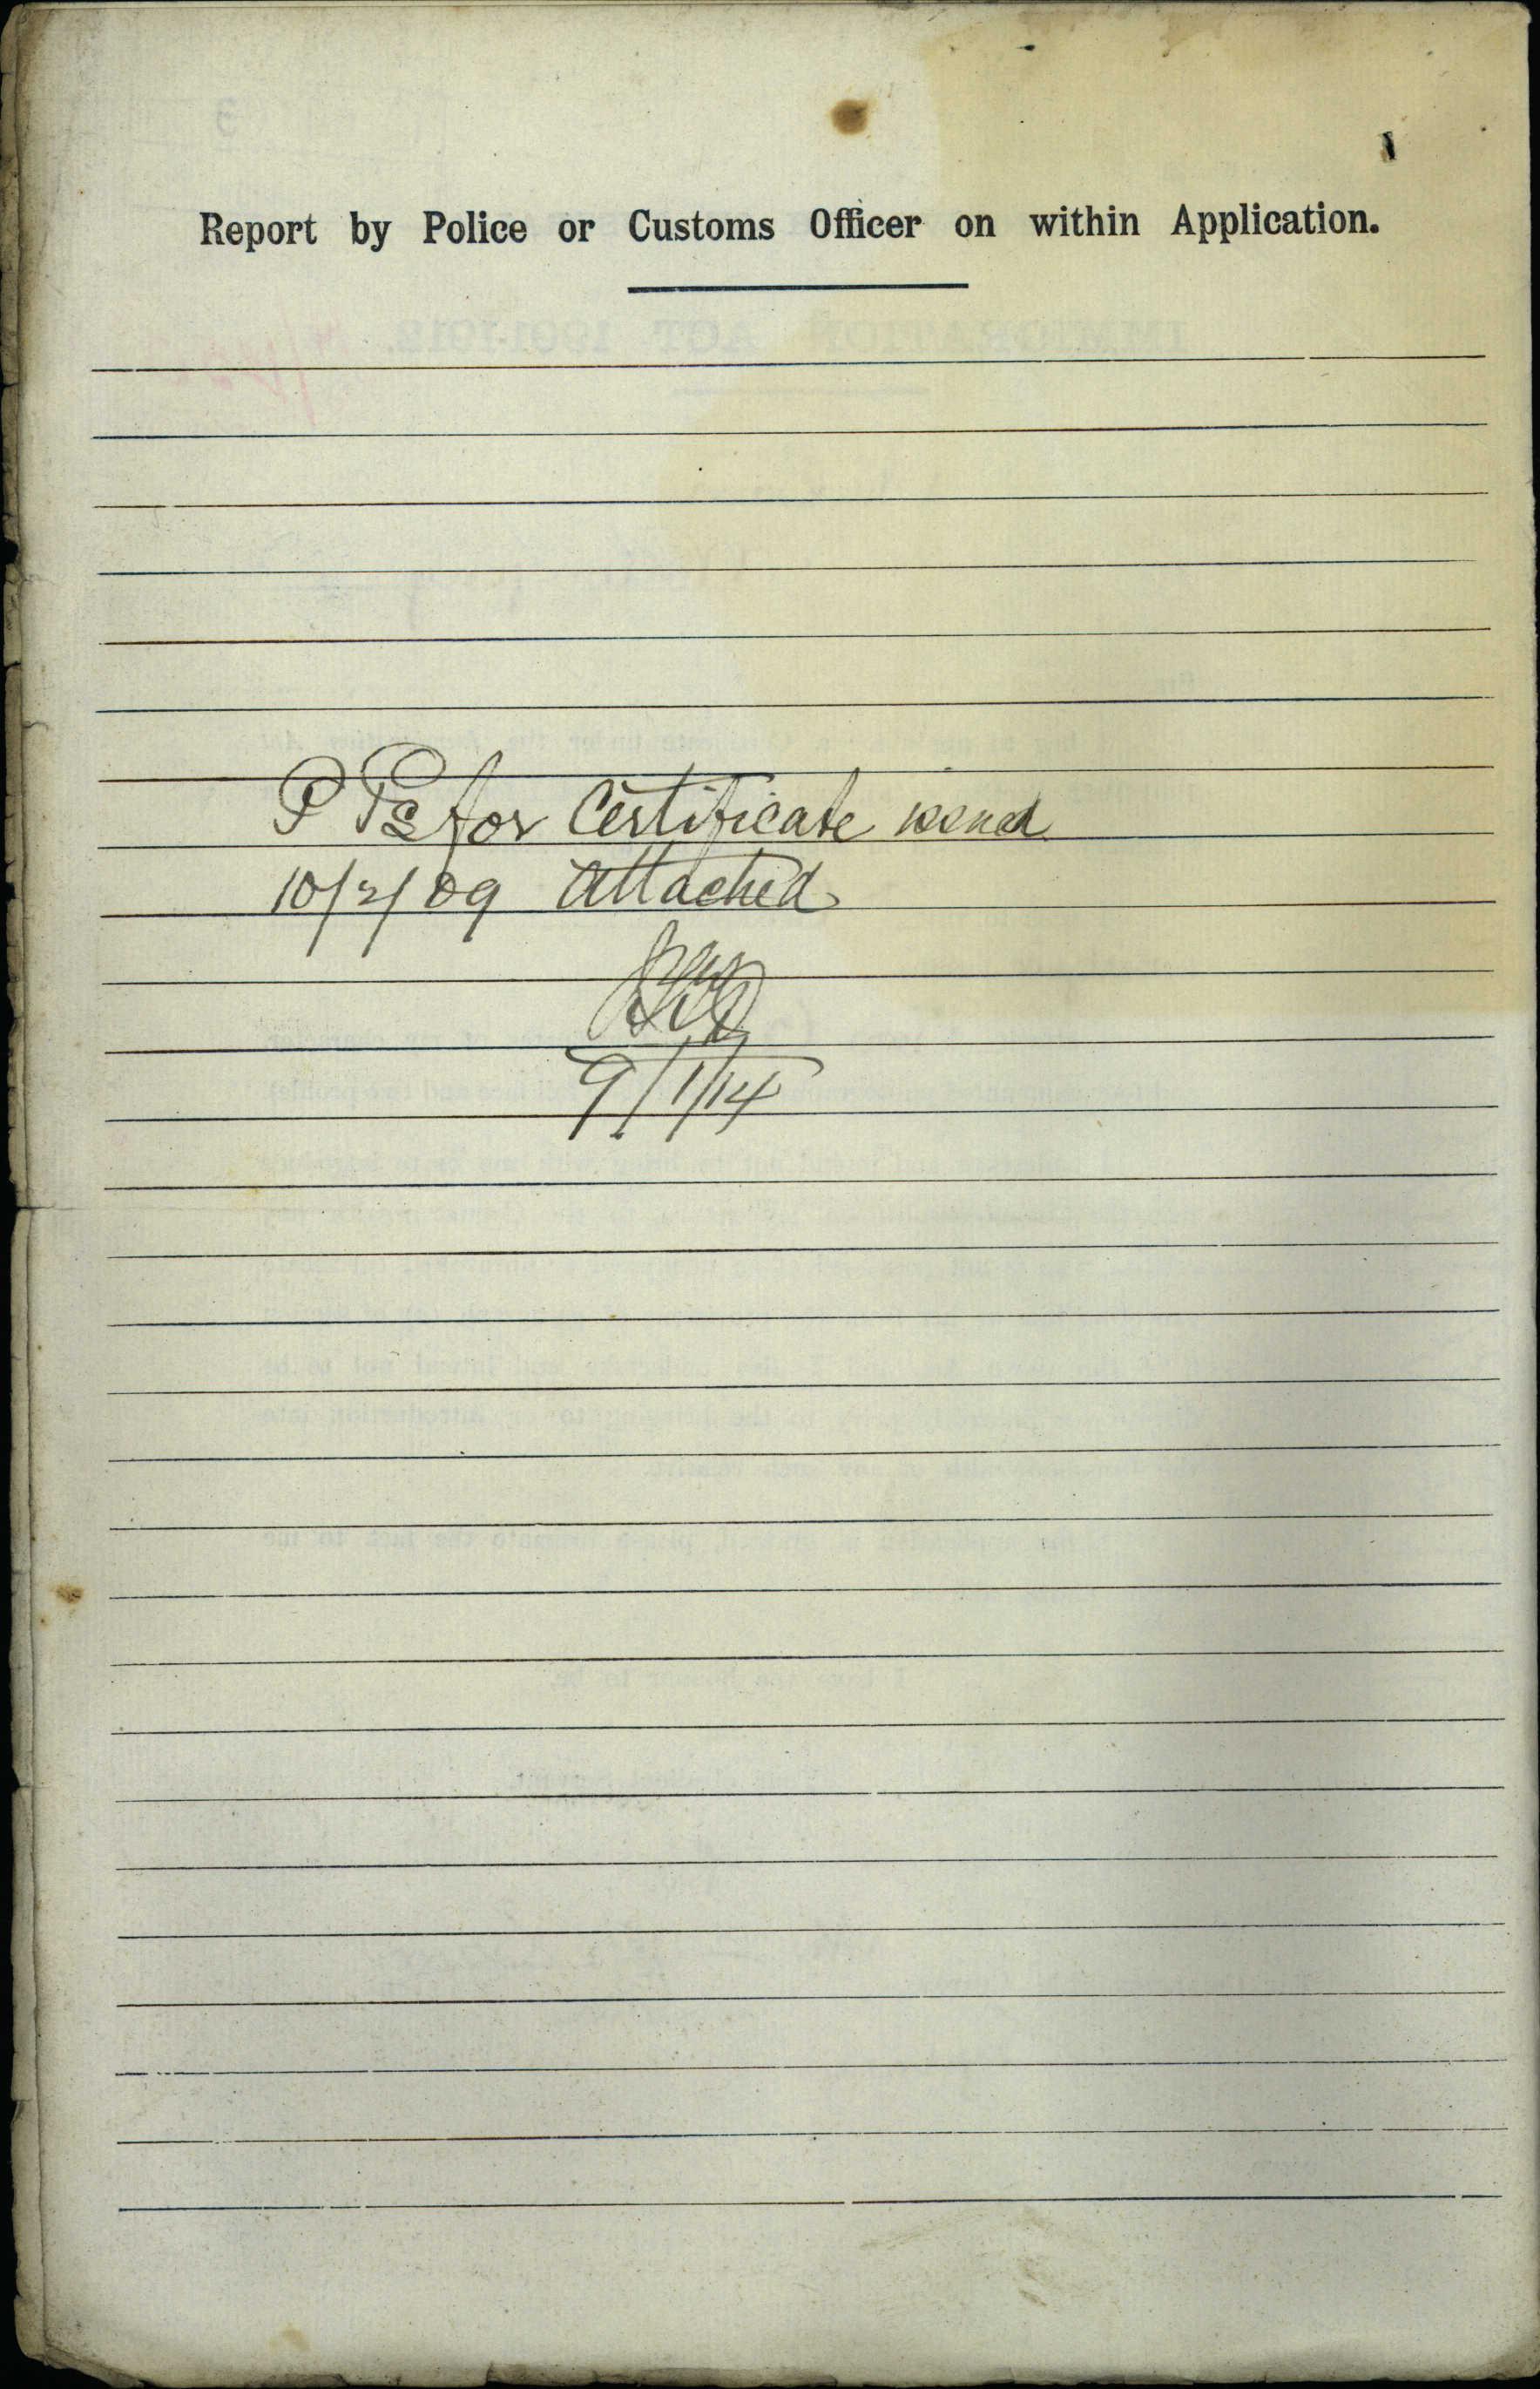 Report by Police or Customs Officer on within Application.
P Ps for Certificate issued
10/2/09 attached
9/1/14